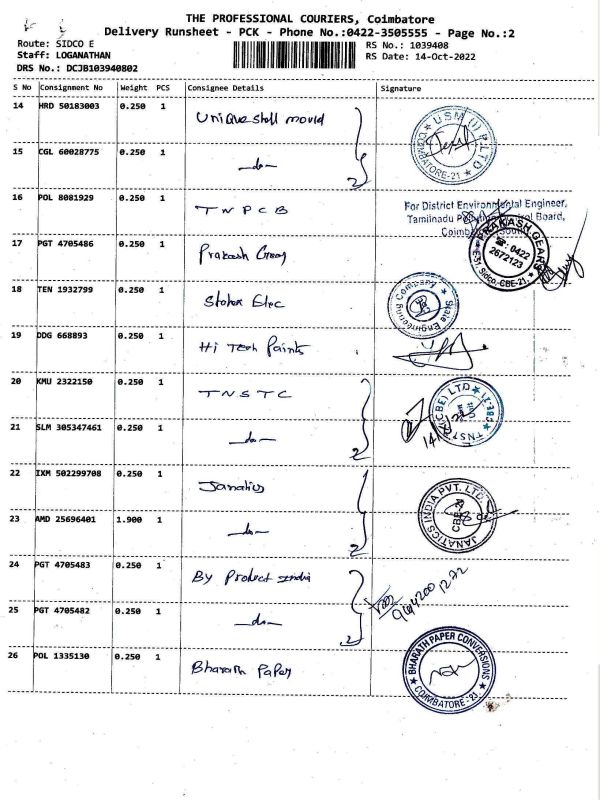 THE PROFESSIONAL COURIERS, Coimbatore
Delivery Runsheet - PCK - Phone No.:0422-3505555 - Page No.:2
Route: SIDCO E
RS No.: 1039408
Staff: LOGANATHAN
RS Date: 14-Oct-2022
DRS No.: DCJB103940802
S No Consignment No Weight PCS Consignee Details Signature
14 HRD 50183003 0.250 1 Unique shell mould
USM (I) P LTD COIMBATORE-21
15 CGL 60028775 0.250 1 —do—
2
16 POL 8081929 0.250 1 TNPCB
For District Environmental Engineer,
Tamilnadu Pollution Control Board,
Coimbatore South
17 PGT 4705486 0.250 1 Prakash Gears
PRAKASH GEARS
☎: 0422
2672123
E-31, Sidco, CBE-21.
18 TEN 1932799 0.250 1 Elec
Engineering Company
19 DDG 668893 0.250 1 Hi Tech Paints
20 KMU 2322150 0.250 1 TNSTC
TNSTC (CBE) LTD CBE-21
21 SLM 305347461 0.250 1 —do—
2
22 IXM 502299708 0.250 1 Janatics
JANATICS INDIA PVT. LTD.
23 AMD 25696401 1.900 1 —do—
2
24 PGT 4705483 0.250 1 By Product India
25 PGT 4705482 0.250 1 —do—
2
26 POL 1335130 0.250 1 Bharath Paper
BHARATH PAPER CONVERSIONS
COIMBATORE-23.